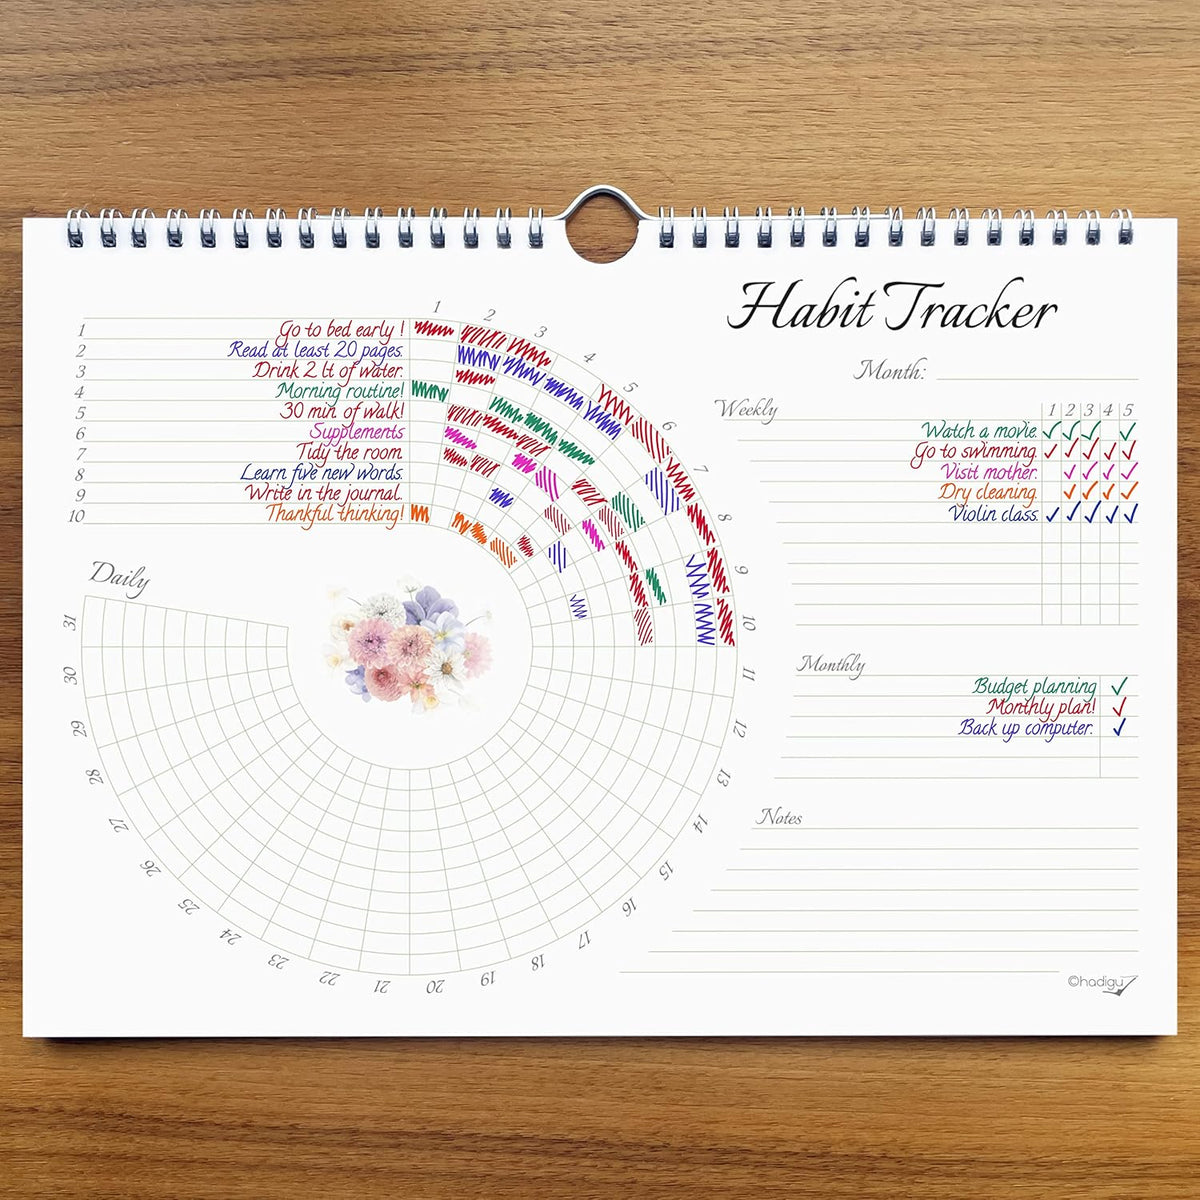 Habit Tracker
Month:
1 Go to bed early !
2 Read at least 20 pages.
3 Drink 2 lt of water.
4 Morning routine!
5 30 min of walk!
6 Supplements
7 Tidy the room
8 Learn five new words.
9 Write in the journal.
10 Thankful thinking!
Daily
1
2
3
4
5
6
7
8
9
10
11
12
13
14
15
16
17
18
19
20
21
22
23
24
25
26
27
28
29
30
31
Weekly 1 2 3 4 5
Watch a movie. ✓ ✓ ✓ ✓
Go to swimming. ✓ ✓ ✓ ✓ ✓
Visit mother. ✓ ✓ ✓ ✓
Dry cleaning. ✓ ✓ ✓ ✓
Violin class. ✓ ✓ ✓ ✓ ✓
Monthly
Budget planning ✓
Monthly plan! ✓
Back up computer. ✓
Notes
©hadigu